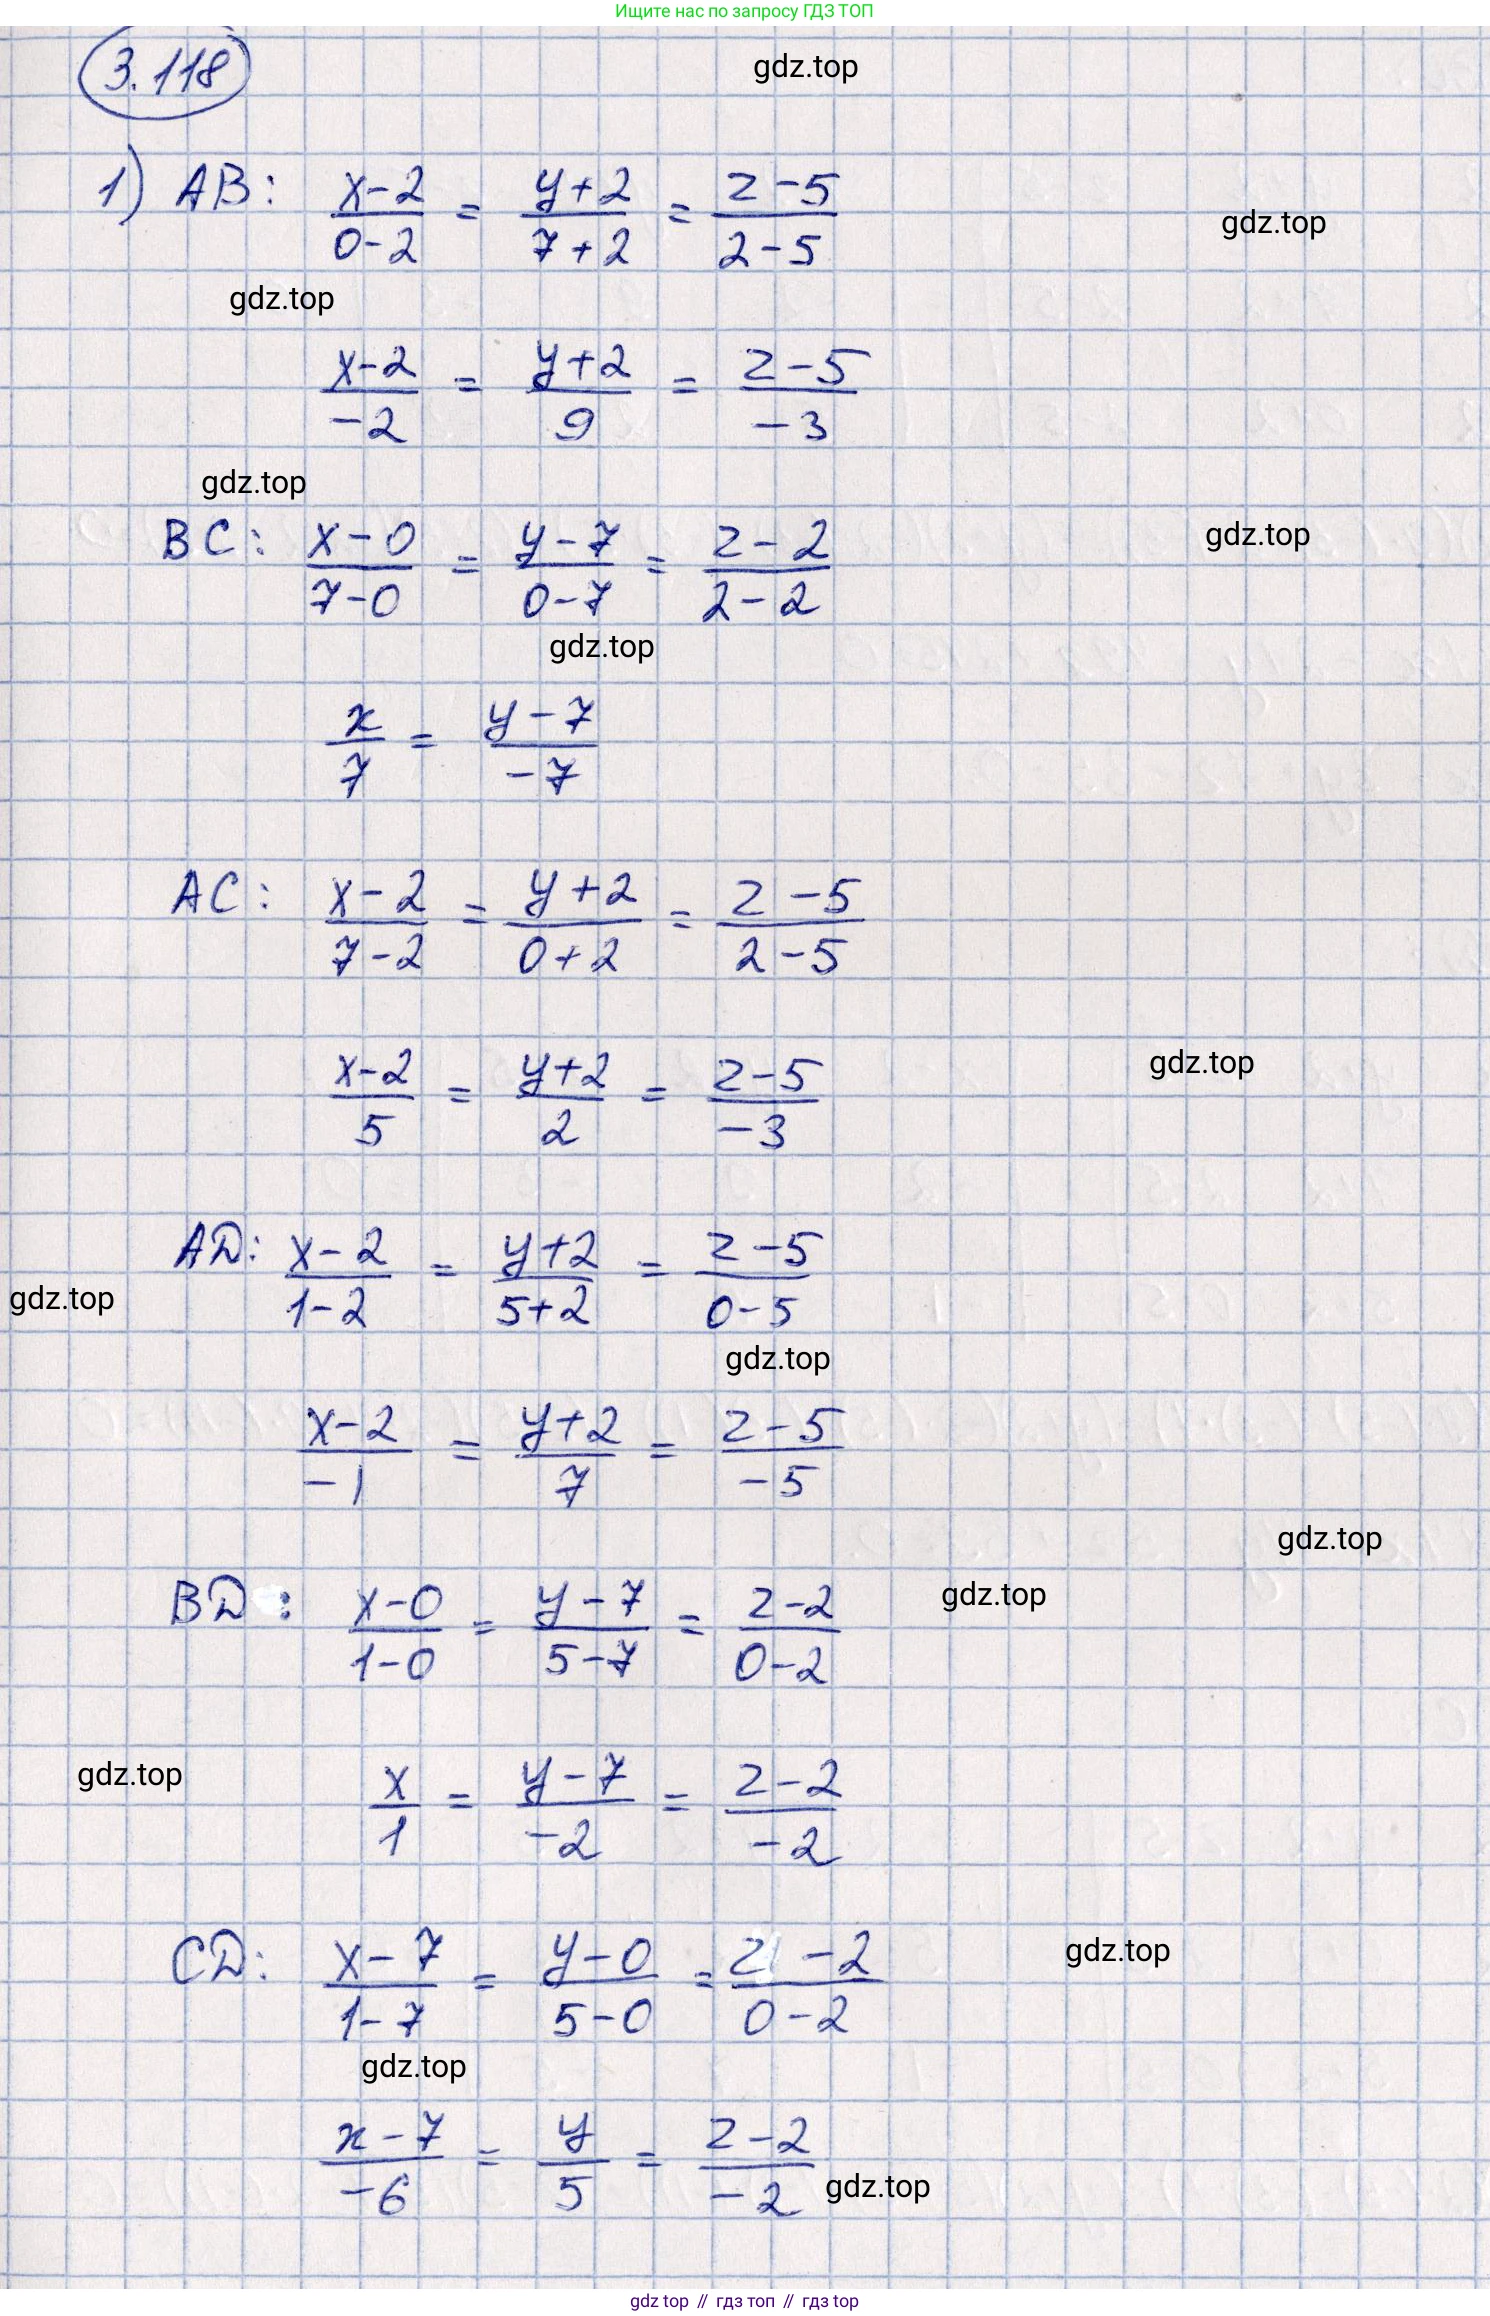 Ищите нас по запросу ГДЗ ТОП
3.118
gdz.top
1) AB: (x-2)/(0-2) = (y+2)/(7+2) = (z-5)/(2-5)
gdz.top
gdz.top
(x-2)/(-2) = (y+2)/9 = (z-5)/(-3)
gdz.top
BC: (x-0)/(7-0) = (y-7)/(0-7) = (z-2)/(2-2)
gdz.top
gdz.top
x/7 = (y-7)/(-7)
AC: (x-2)/(7-2) = (y+2)/(0+2) = (z-5)/(2-5)
(x-2)/5 = (y+2)/2 = (z-5)/(-3)
gdz.top
AD: (x-2)/(1-2) = (y+2)/(5+2) = (z-5)/(0-5)
gdz.top
gdz.top
(x-2)/(-1) = (y+2)/7 = (z-5)/(-5)
gdz.top
BD: (x-0)/(1-0) = (y-7)/(5-7) = (z-2)/(0-2)
gdz.top
gdz.top
x/1 = (y-7)/(-2) = (z-2)/(-2)
CD: (x-7)/(1-7) = (y-0)/(5-0) = (z-2)/(0-2)
gdz.top
gdz.top
(x-7)/(-6) = y/5 = (z-2)/(-2)
gdz.top
gdz top // гдз топ // гдз top